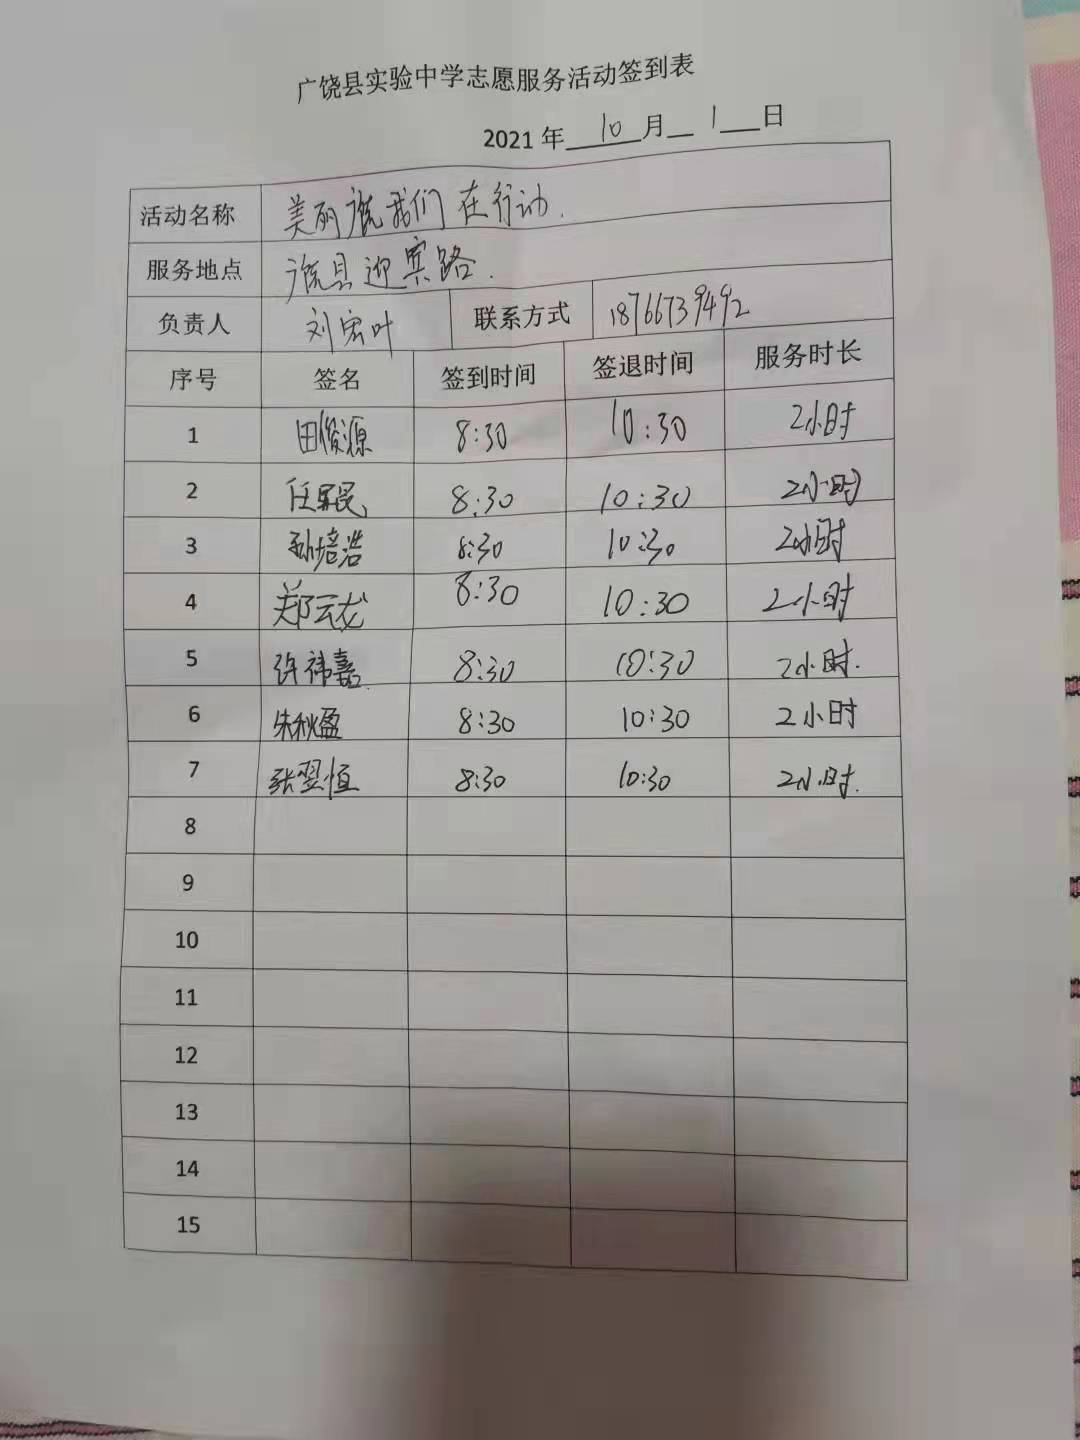 广饶县实验中学志愿服务活动签到表
2021 年 10 月 1 日
活动名称 美丽广饶我们在行动.
服务地点 广饶县迎宾路.
负责人 刘宏叶 联系方式 18766739492
序号 签名 签到时间 签退时间 服务时长
1 田俊源 8:30 10:30 2小时
2 任 民 8:30 10:30 2小时
3 孙培浩 8:30 10:30 2小时
4 郑云龙 8:30 10:30 2小时
5 许祎嘉. 8:30 10:30 2小时.
6 朱秋盈 8:30 10:30 2小时
7 张翌恒 8:30 10:30 2小时.
8
9
10
11
12
13
14
15